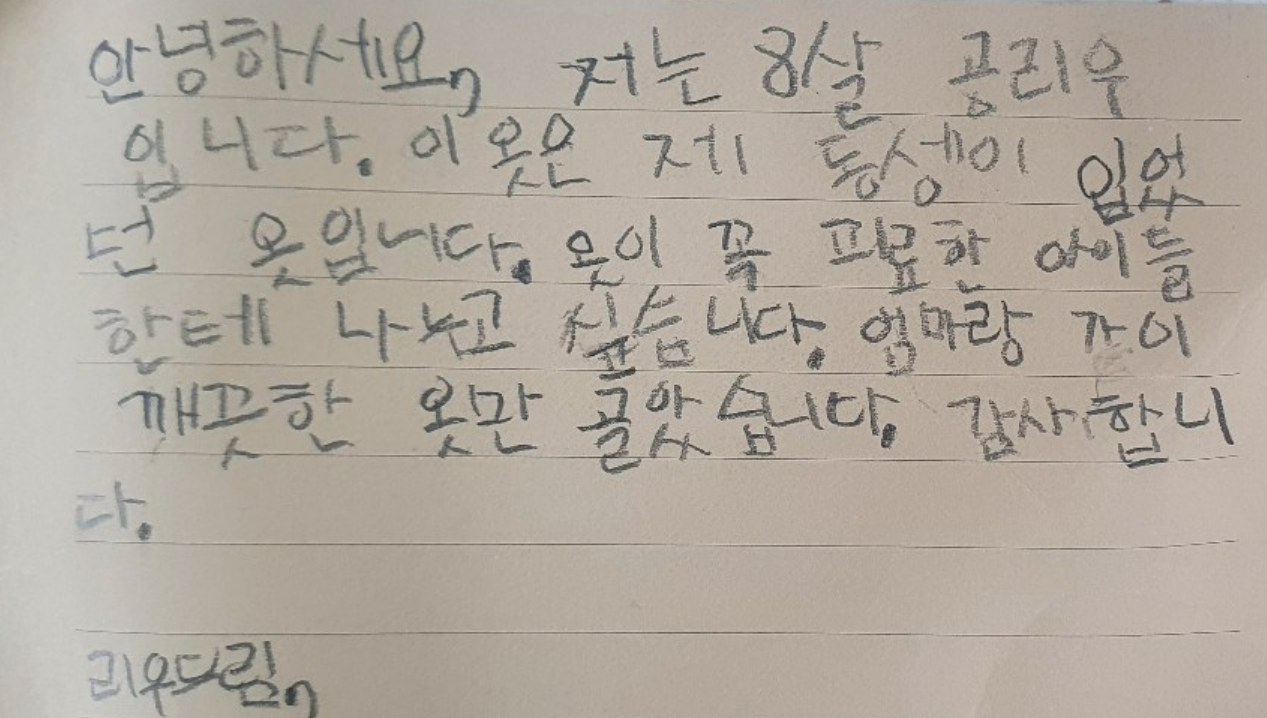 안녕하세요, 저는 8살 공리우
입니다. 이 옷은 제 동생이 입었
던 옷입니다. 옷이 꼭 피료한 아이들
한테 나누고 싶습니다. 엄마랑 가이
깨끗한 옷만 골랐습니다. 감사합니
다.
리우드림,